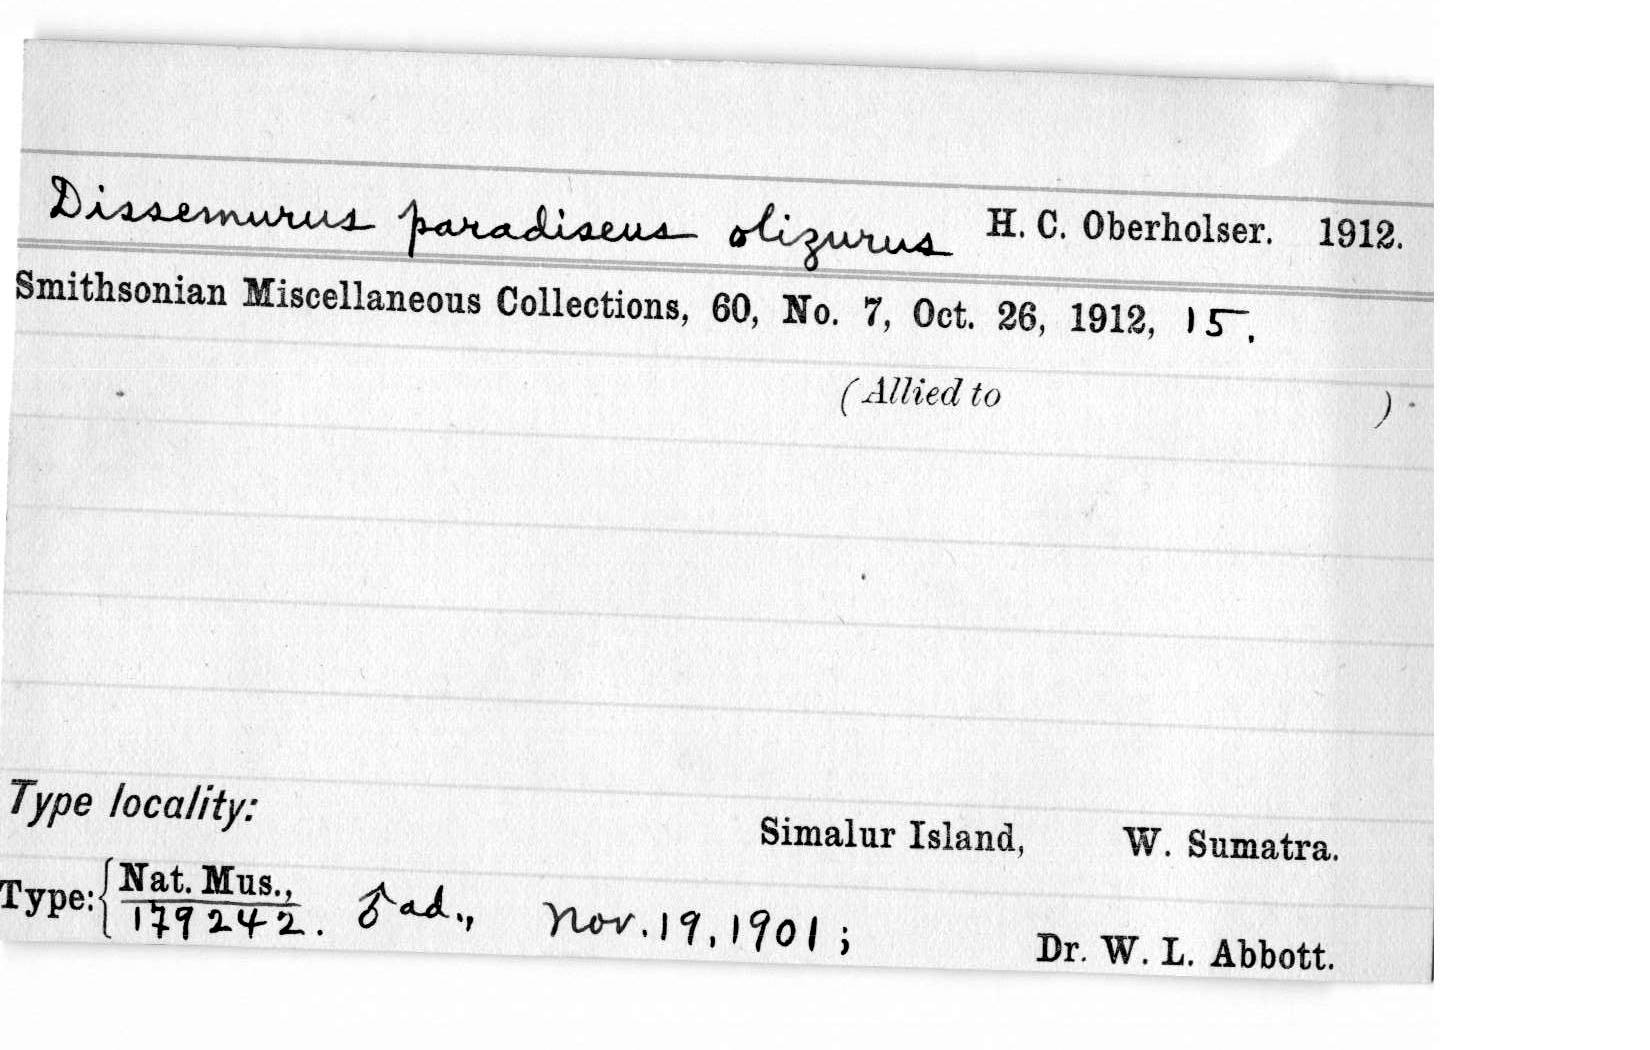 Dissemurus paradiseus olizurus H. C. Oberholser. 1912.
Smithsonian Miscellaneous Collections, 60, No. 7, Oct. 26, 1912, 15.
(Allied to )
Type locality:
Simalur Island, W. Sumatra.
Type: { Nat. Mus.,
179242. ♂ ad., Nov. 19, 1901; Dr. W. L. Abbott.